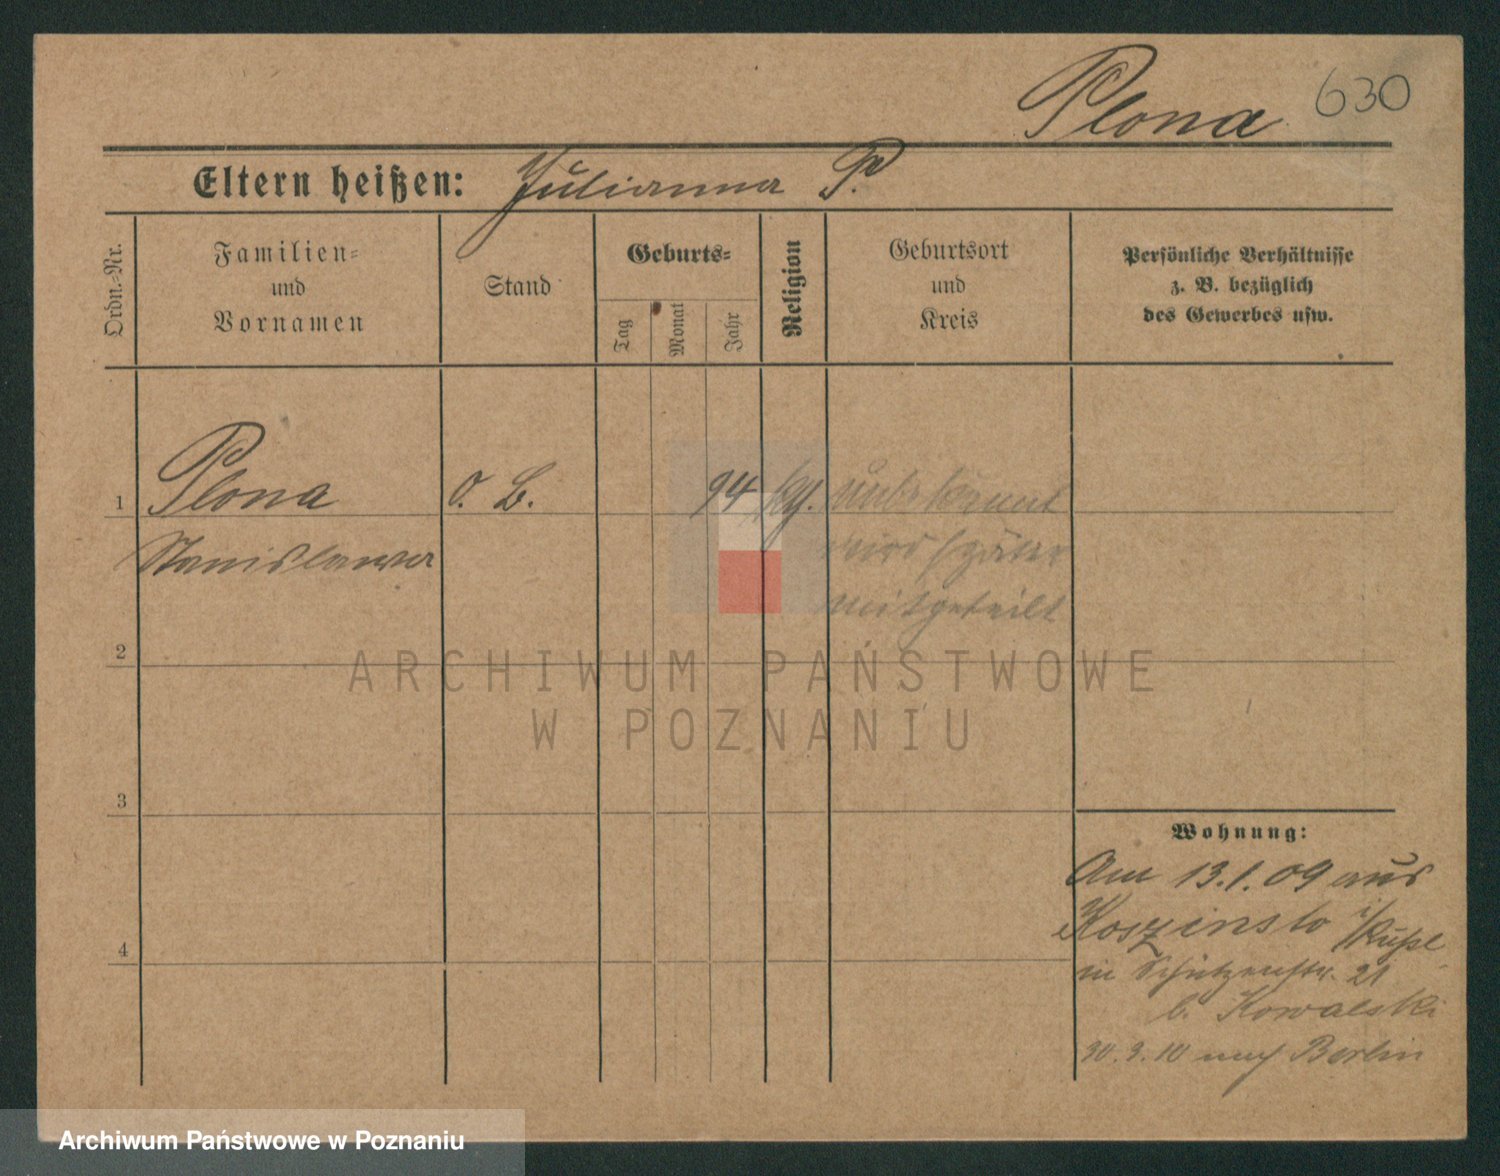 Plona 630
Eltern heißen: Julianna P.
Ordn.-Nr.
Familien-
und
Vornamen
Stand
Geburts-
Tag
Monat
Jahr
Religion
Geburtsort
und
Kreis
Persönliche Verhältnisse
z. B. bezüglich
des Gewerbes usw.
1 Plona o. B. 94 kth. unbekannt
Stanislawa wird später
mitgeteilt
2
ARCHIWUM PAŃSTWOWE
W POZNANIU
3
Wohnung:
Am 13.1.09 aus
Koszinsto i/Rußl
in Schützenstr. 21
4
b. Kowalski
30.3.10 nach Berlin
Archiwum Państwowe w Poznaniu